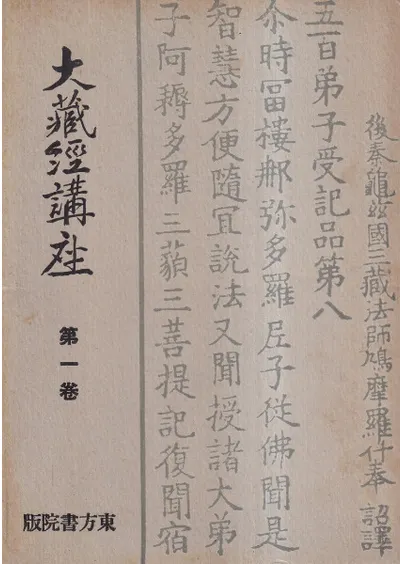 後秦龜茲國三藏法師鳩摩羅什奉 詔譯
五百弟子受記品第八
尒時冨樓那弥多羅尼子從佛聞是
智慧方便隨宜說法又聞授諸大弟
子阿耨多羅三藐三菩提記復聞宿
大藏經講座
第一卷
東方書院版